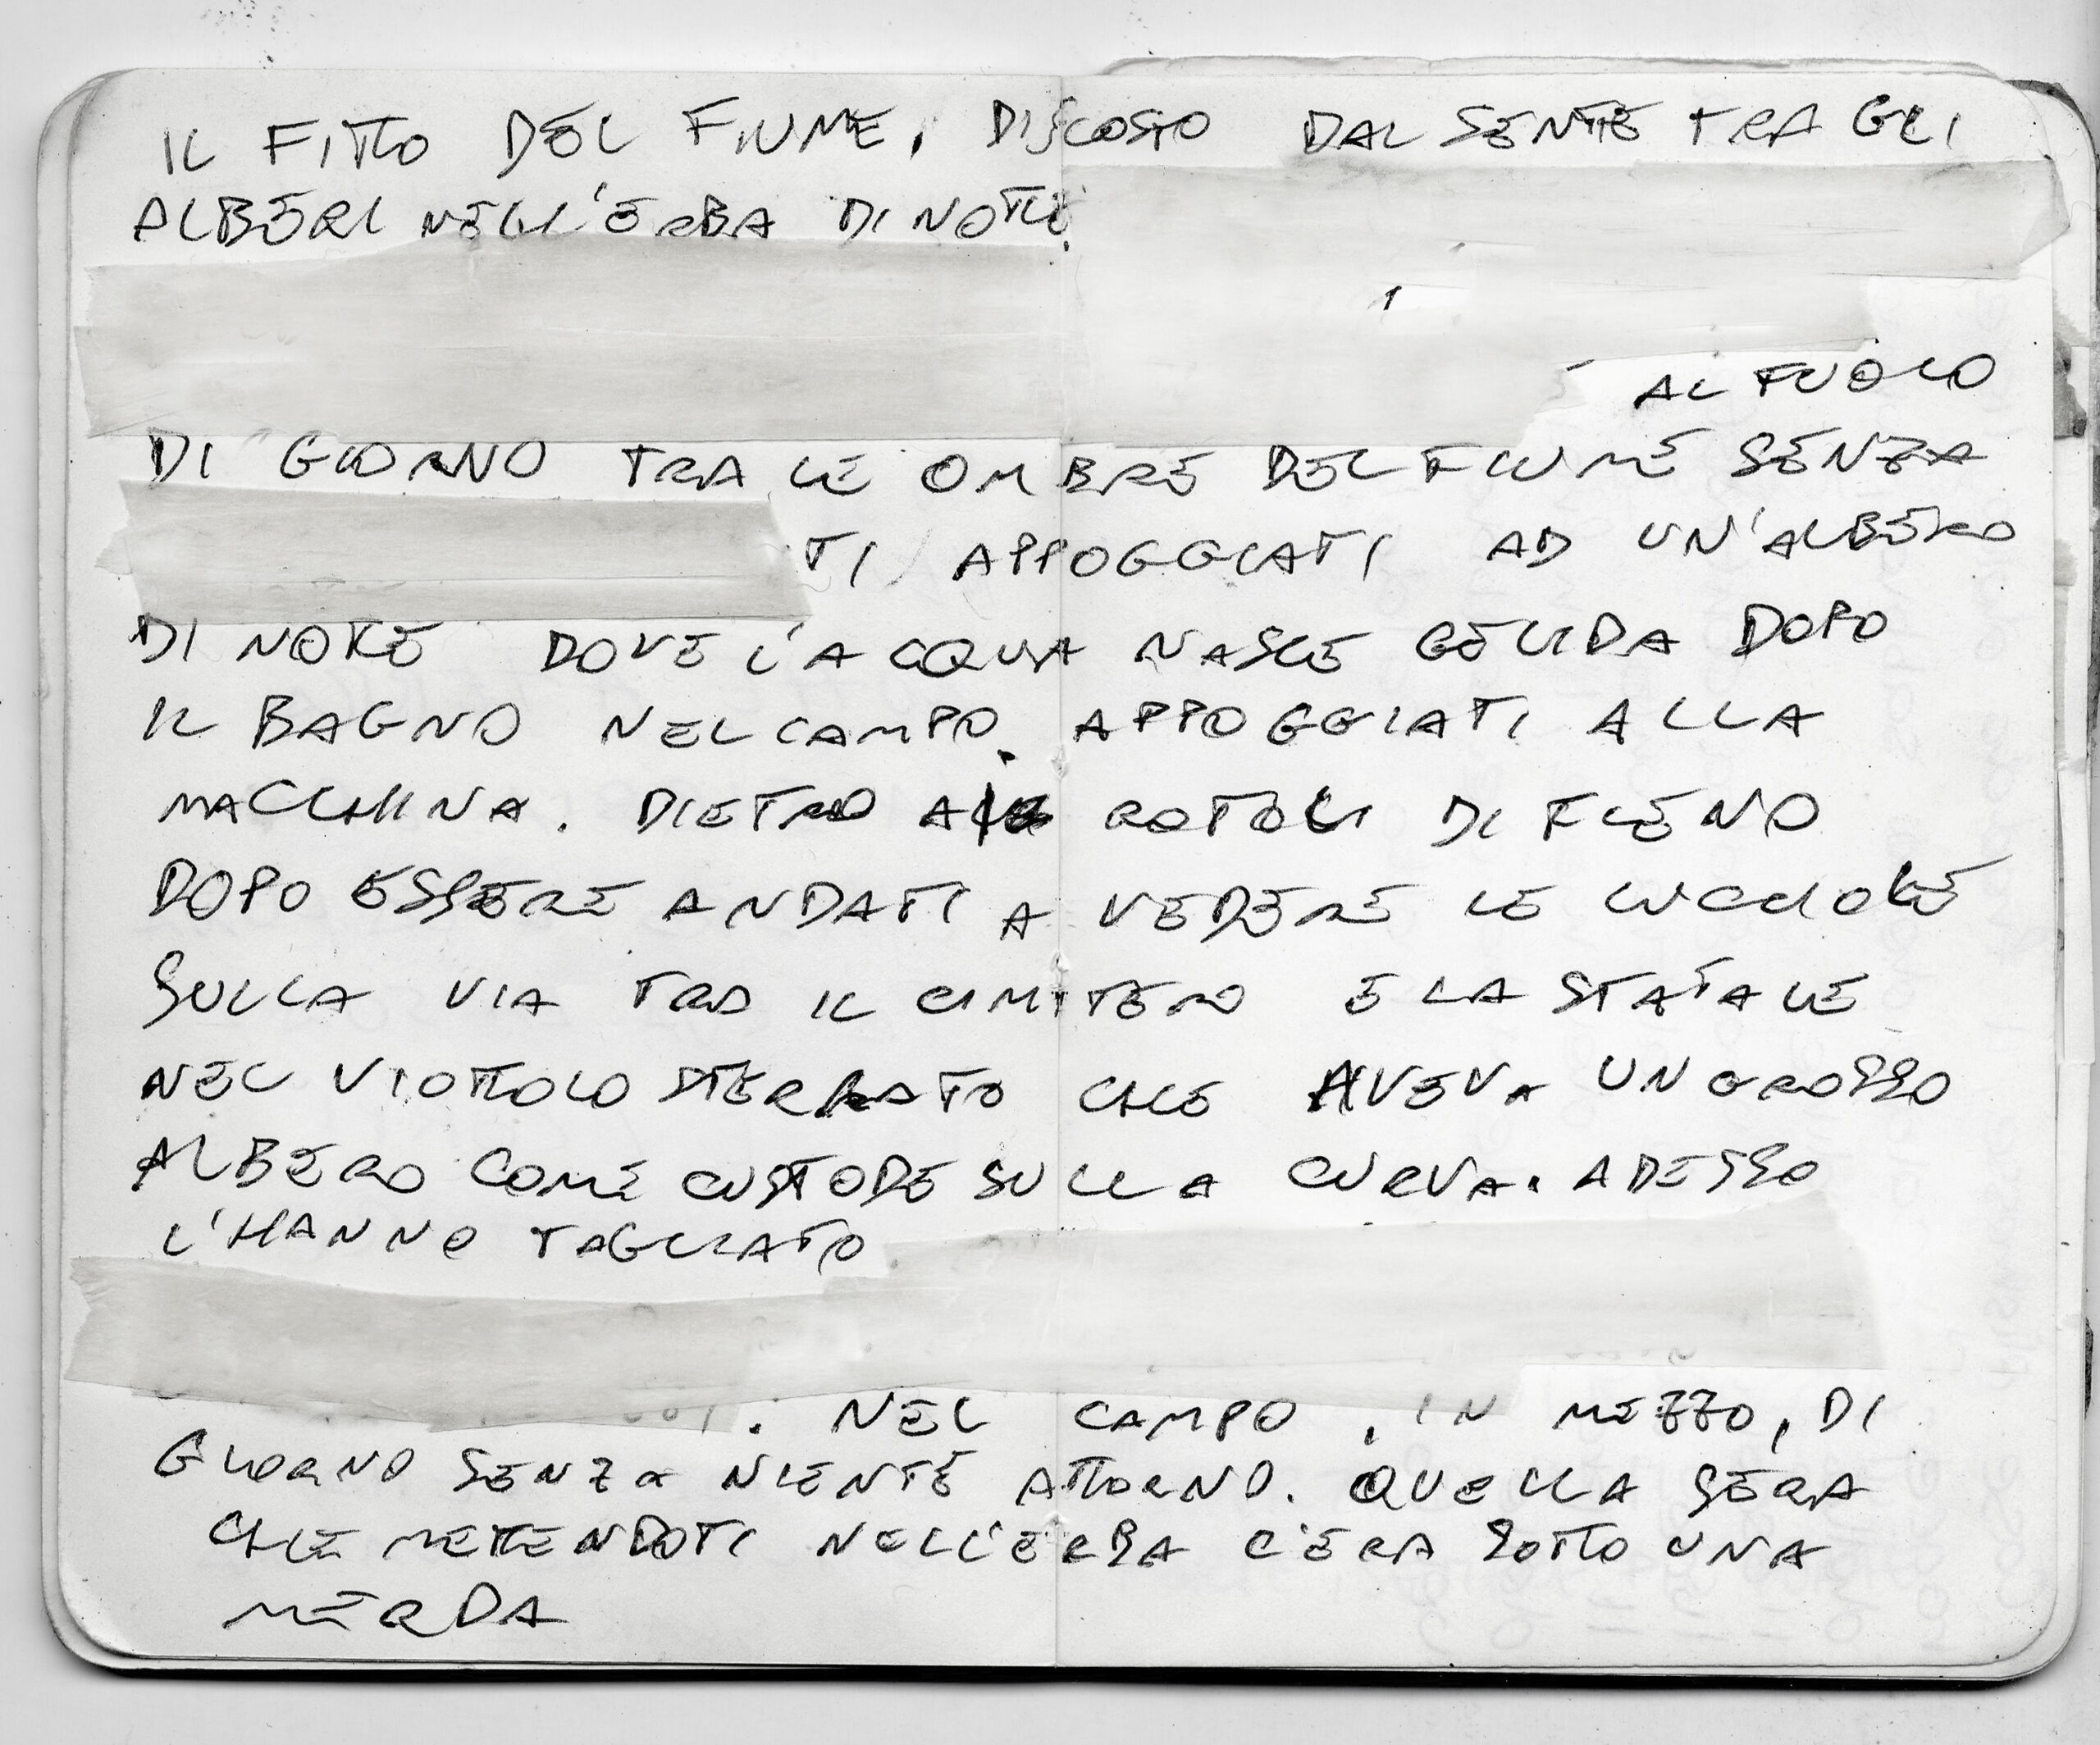 IL FITTO DEL FIUME, DISCOSTO DAL SENTE TRA GLI
ALBERI NELL'ERBA DI NOTTE.
AL FUOCO
DI GIORNO TRA LE OMBRE DEL FIUME SENZA
TI APPOGGIATI AD UN'ALBERO
DI NOTTE DOVE L'ACQUA NASCE GELIDA DOPO
IL BAGNO NEL CAMPO. APPOGGIATI ALLA
MACCHINA. DIETRO AI ROTOLI DI FIENO
DOPO ESSERE ANDATI A VEDERE LE LUCCIOLE
SULLA VIA TRA IL CIMITERO E LA STATALE
NEL VIOTTOLO STERRATO CHE AVEVA UN GROSSO
ALBERO COME CUSTODE SULLA CURVA. ADESSO
L'HANNO TAGLIATO
. NEL CAMPO, IN MEZZO, DI
GIORNO SENZA NIENTE ATTORNO. QUELLA SERA
CHE METTENDOTI NELL'ERBA C'ERA SOTTO UNA
MERDA